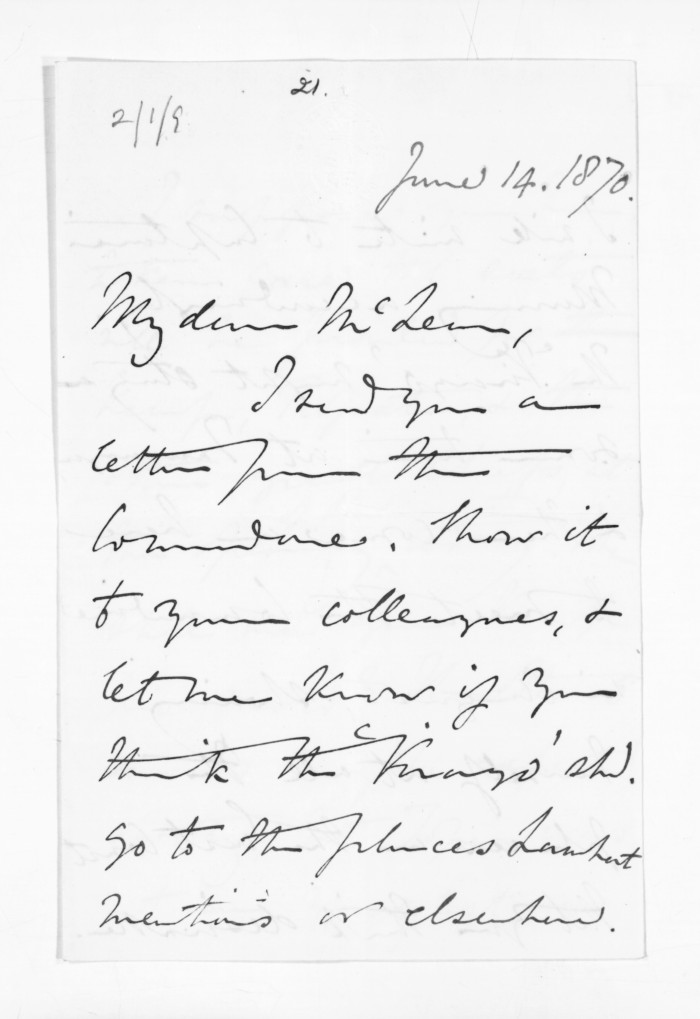 21.
2/1/9
June 14. 1870.
My dear McLean,
I send you a
letter from the
Commodore. Show it
to your colleagues, &
let me know if you
think the 'Virago' shd.
go to the places Lambert
mentions or elsewhere.